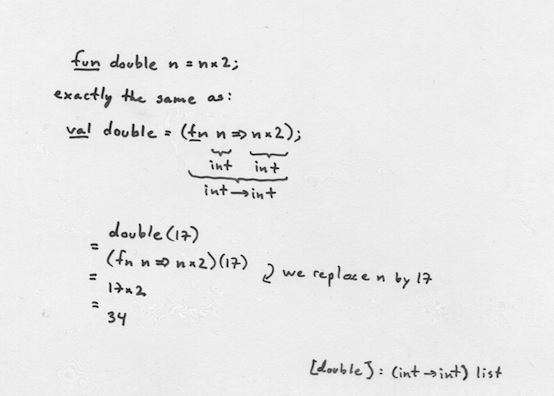 fun double n = n×2;
exactly the same as:
val double = (fn n ⇒ n×2);
int int
int → int
double(17)
=
(fn n ⇒ n×2)(17)
we replace n by 17
=
17×2
=
34
[double] : (int → int) list